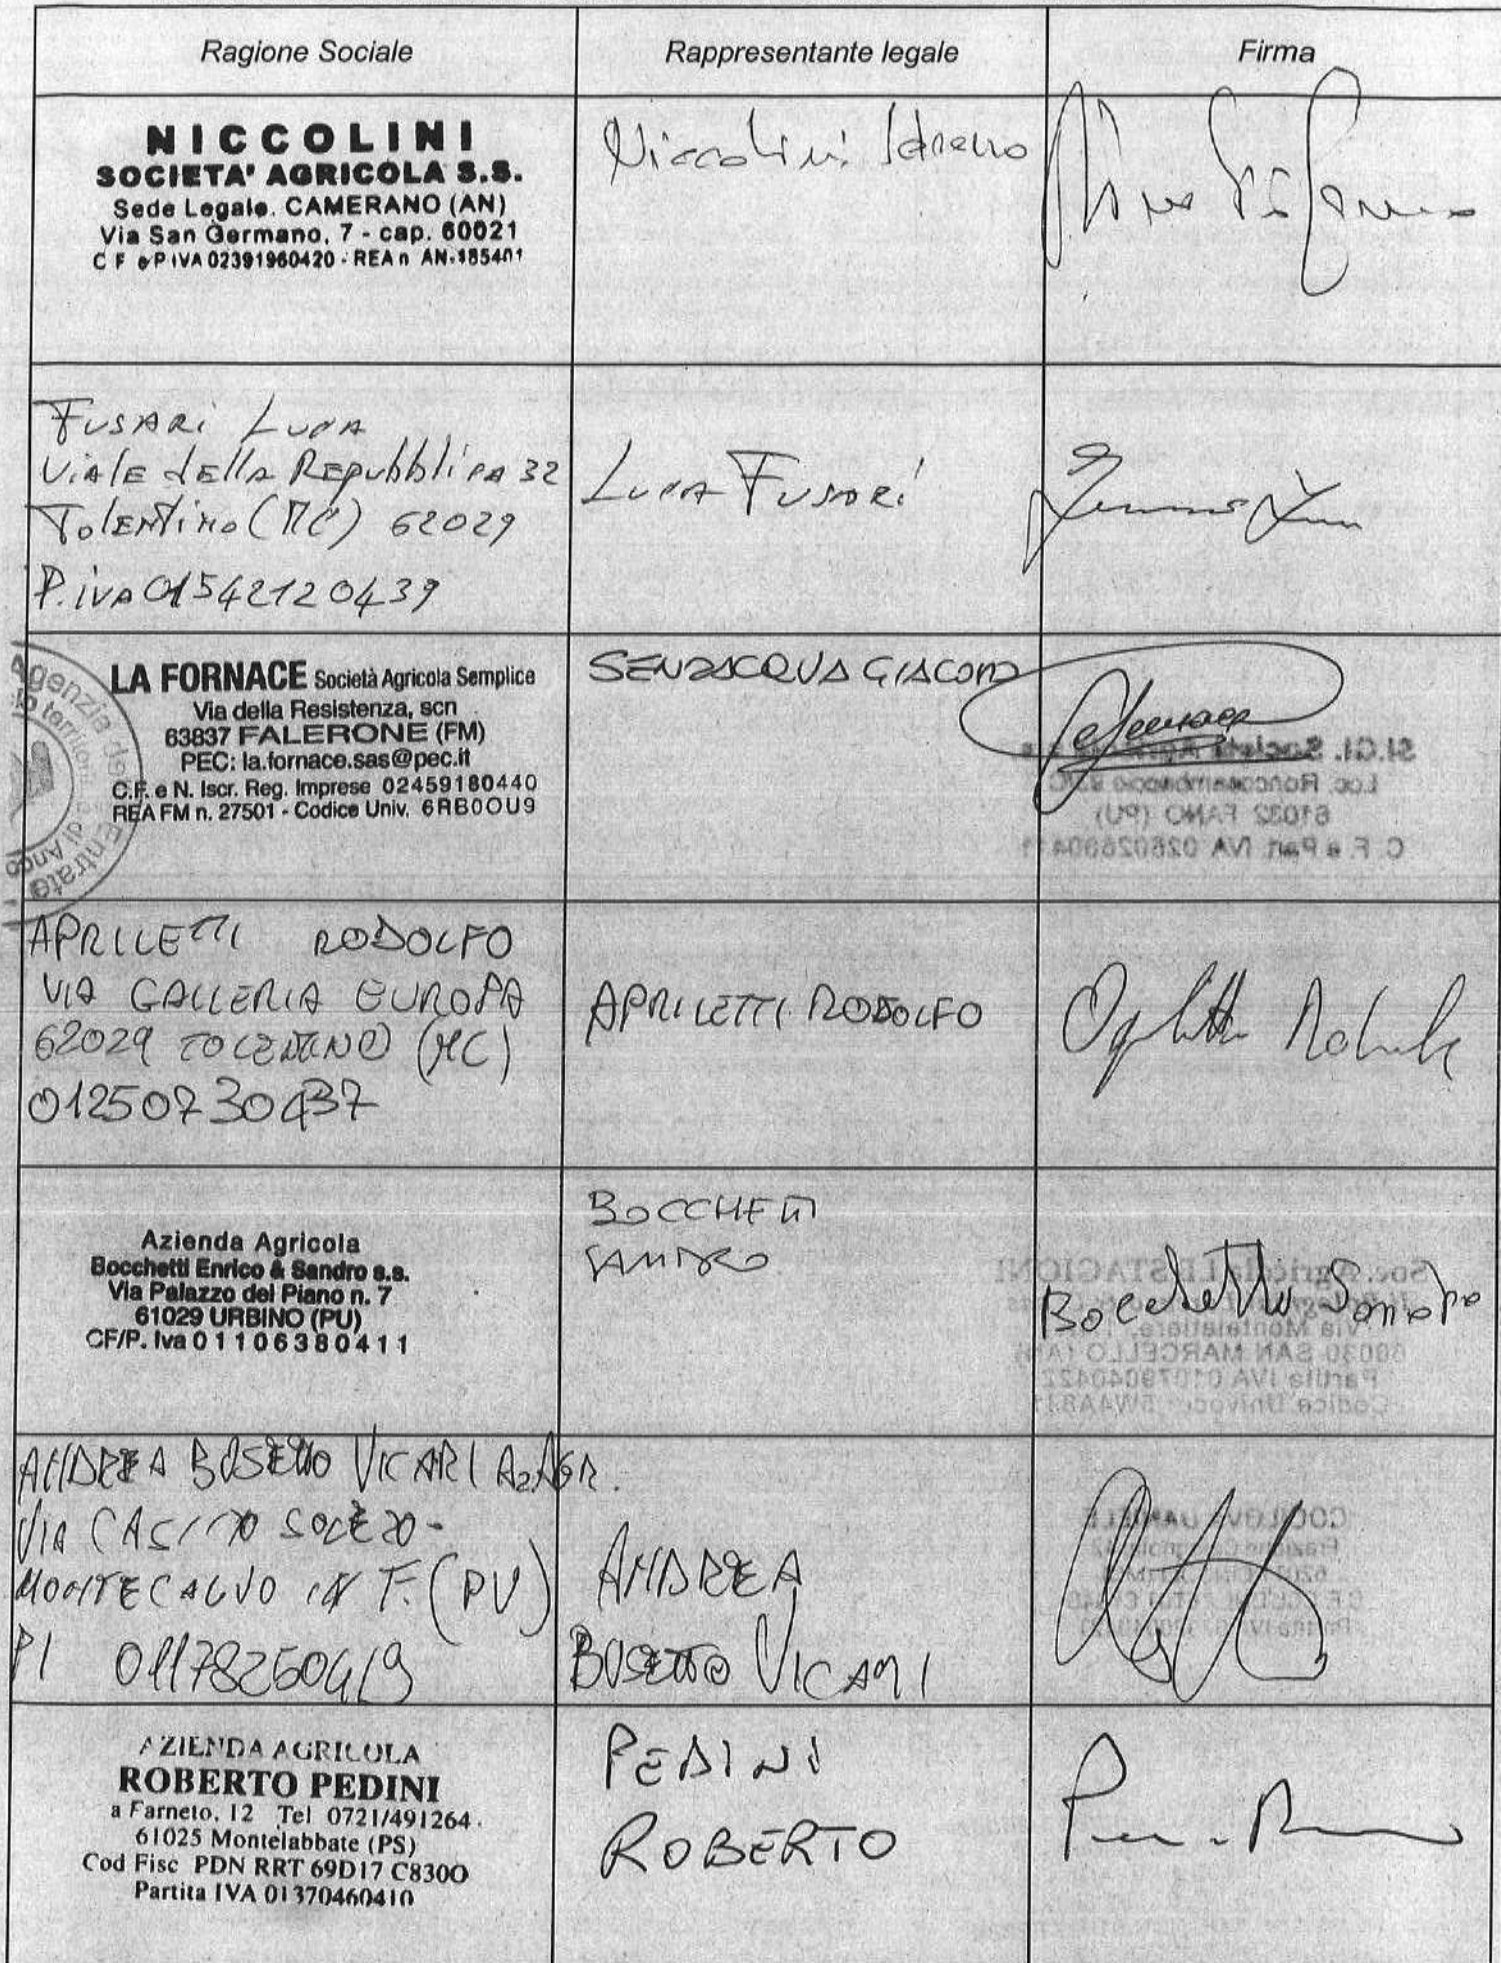 Ragione Sociale
Rappresentante legale
Firma
NICCOLINI
SOCIETA' AGRICOLA S.S.
Sede Legale. CAMERANO (AN)
Via San Germano, 7 - cap. 60021
C F e P IVA 02391960420 - REA n AN-185401
Niccolini
FUSARI LUCA
Viale della Repubblica 32
Tolentino (MC) 62029
P.iva 01542120439
LUCA FUSARI
LA FORNACE Società Agricola Semplice
Via della Resistenza, scn
63837 FALERONE (FM)
PEC: la.fornace.sas@pec.it
C.F. e N. Iscr. Reg. Imprese 02459180440
REA FM n. 27501 - Codice Univ. 6RB0OU9
SENZACQUA GIACOMO
Agenzia delle Entrate
APRILETTI RODOLFO
VIA GALLERIA EUROPA
62029 TOLENTINO (MC)
01250730437
APRILETTI RODOLFO
Azienda Agricola
Bocchetti Enrico & Sandro s.s.
Via Palazzo del Piano n. 7
61029 URBINO (PU)
CF/P. Iva 01106380411
BOCCHETTI
SANDRO
Bocchetti Sandro
ANDREA BUSETTO VICARI Az. AGR.
VIA CASINO
MONTECALVO IN F. (PU)
PI 01178250419
ANDREA
BUSETTO VICARI
AZIENDA AGRICOLA
ROBERTO PEDINI
a Farneto, 12 Tel 0721/491264
61025 Montelabbate (PS)
Cod Fisc PDN RRT 69D17 C830O
Partita IVA 01370460410
PEDINI
ROBERTO